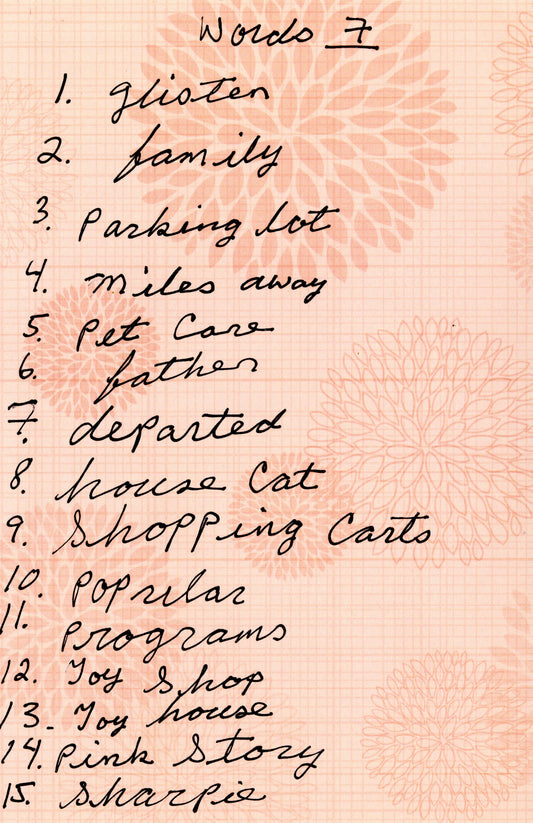 Words 7
1. glisten
2. family
3. Parking lot
4. miles away
5. Pet Care
6. father
7. departed
8. house Cat
9. Shopping Carts
10. Poprular
11. Programs
12. Toy Shop
13. Toy house
14. Pink Story
15. Sharpie